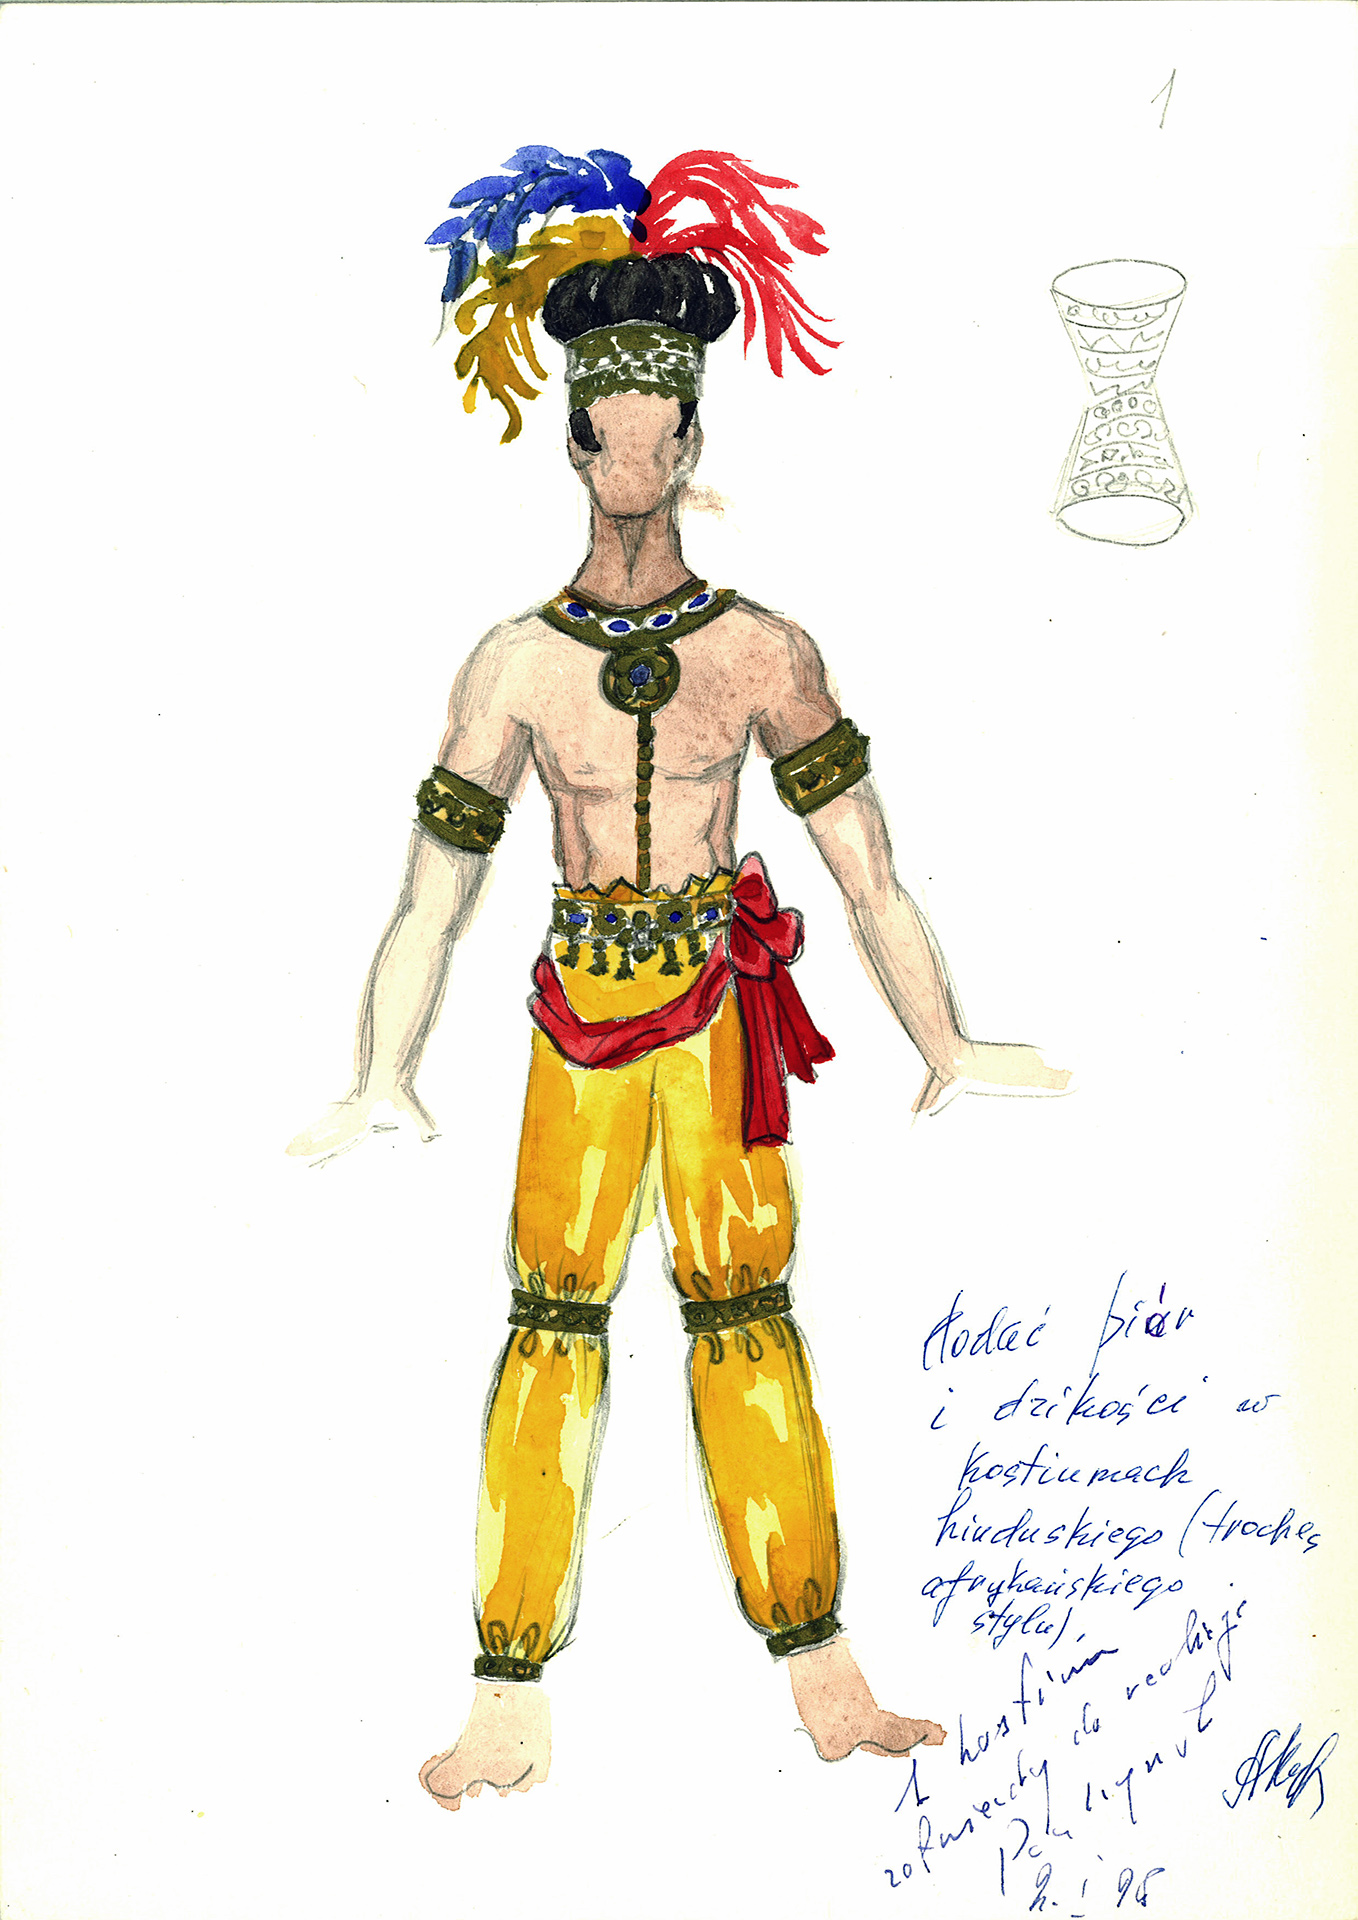 1
dodać piór
i dzikości w
kostiumach
hinduskiego (trochę
afrykańskiego
stylu)
1 kostium
zatwierdzony do realizacji
2. I 98